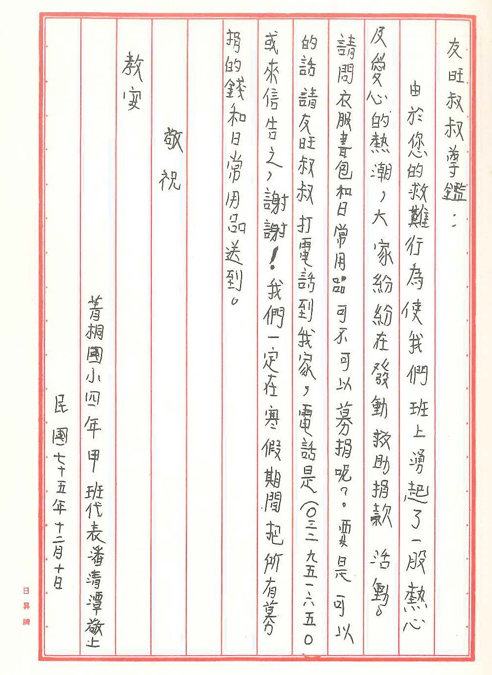 友旺叔叔尊鑑：
由於您的救難行為使我們班上湧起了一股熱心
及愛心的熱潮，大家紛紛在發動救助捐款活動。
請問衣服書包和日常用品可不可以募捐呢？要是可以
的話請友旺叔叔打電話到我家，電話是（〇三二九五一六五〇
或來信告之，謝謝！我們一定在寒假期間把所有募
捐的錢和日常用品送到。
敬祝
教安
菁桐國小四年甲班代表潘清潭敬上
民國七十五年十二月十日
日昇牌